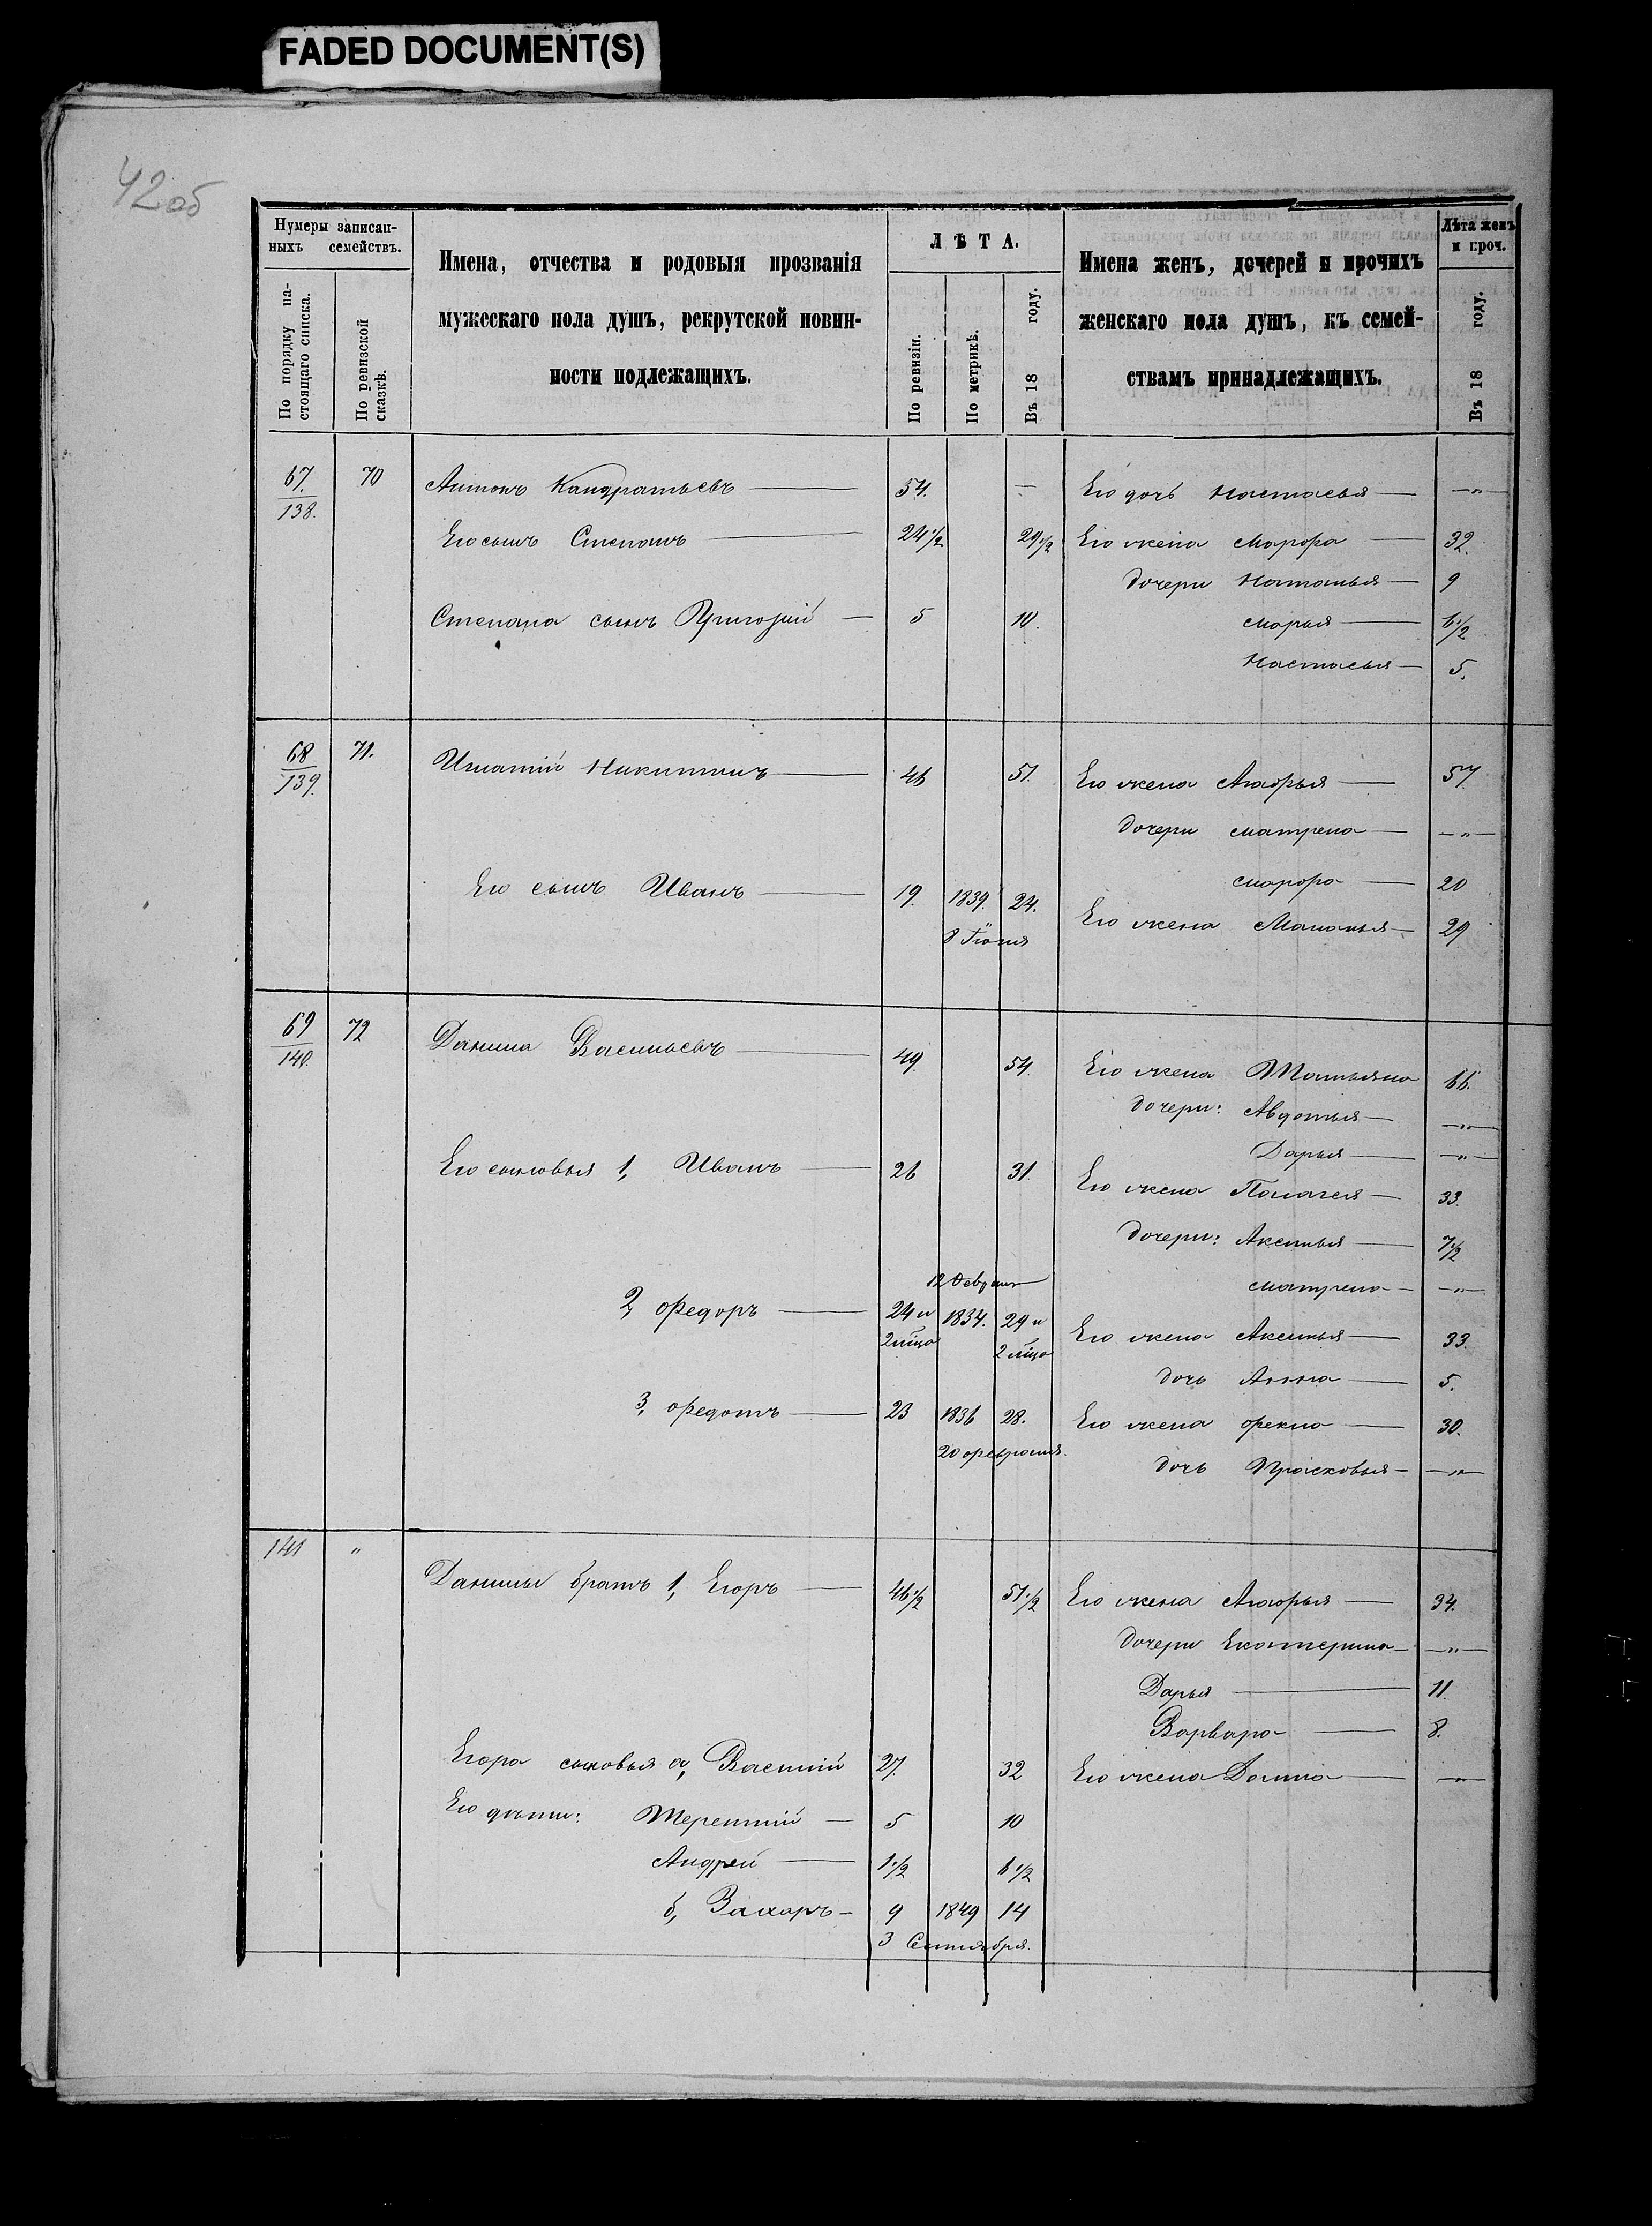 FADED DOCUMENT(S)
42об
Нумеры записан-
ныхъ семействъ.
По порядку на-
стоящаго списка.
По ревизской
сказкѣ.
Имена, отчества и родовыя прозванія
мужескаго пола душъ, рекрутской повин-
ности подлежащихъ.
ЛѢТА.
По ревизіи.
По метрикѣ.
Въ 18 году.
Имена женъ, дочерей и прочихъ
женскаго пола душъ, къ семей-
ствамъ принадлежащихъ.
Лѣта женъ
и проч.
Въ 18 году.
67. 70 Антонъ Кандратьевъ — 54. — Его дочь Настасья — —"—
138.
Его сынъ Степанъ — 24 1/2 29 1/2 Его жена Марфа — 32.
дочери Наталья — 9
Степана сынъ Григорій — 5 10. Марья — 6 1/2
Настасья — 5.
68 71. Игнатій Никитинъ — 46 51. Его жена Агафья — 57
139.
дочери Матрена — —"—
Марфа — 20
Его сынъ Иванъ — 19. 1839. 24. Его жена Маланья — 29
8 Іюня
69 72 Данила Васильевъ — 49. 54. Его жена Татьяна 66.
140.
дочери: Авдотья — —"—
Дарья — —"—
Его сыновья 1, Иванъ — 26 31. Его жена Палагея — 33.
дочери: Аксинья — 7 1/2
Матрена — —"—
12 Февраля
2, Федоръ — 24 и 1834. 29 и Его жена Аксинья — 33.
2 мѣца 2 мѣца
дочь Анна — 5.
3, Федотъ — 23 1836 28. Его жена Фекла — 30.
20 февраля.
дочь Прасковья — —"—
141 " Данилы братъ 1, Егоръ — 46 1/2 51 1/2 Его жена Агафья — 34.
дочери Екатерина — —"—
Дарья — 11.
Варвара — 8.
Егора сыновья а, Василій 27. 32 Его жена — —"—
Его дѣти: Терентій — 5 10
Андрей — 1 1/2 6 1/2
б, Захаръ — 9 1849 14
3 Сентября.